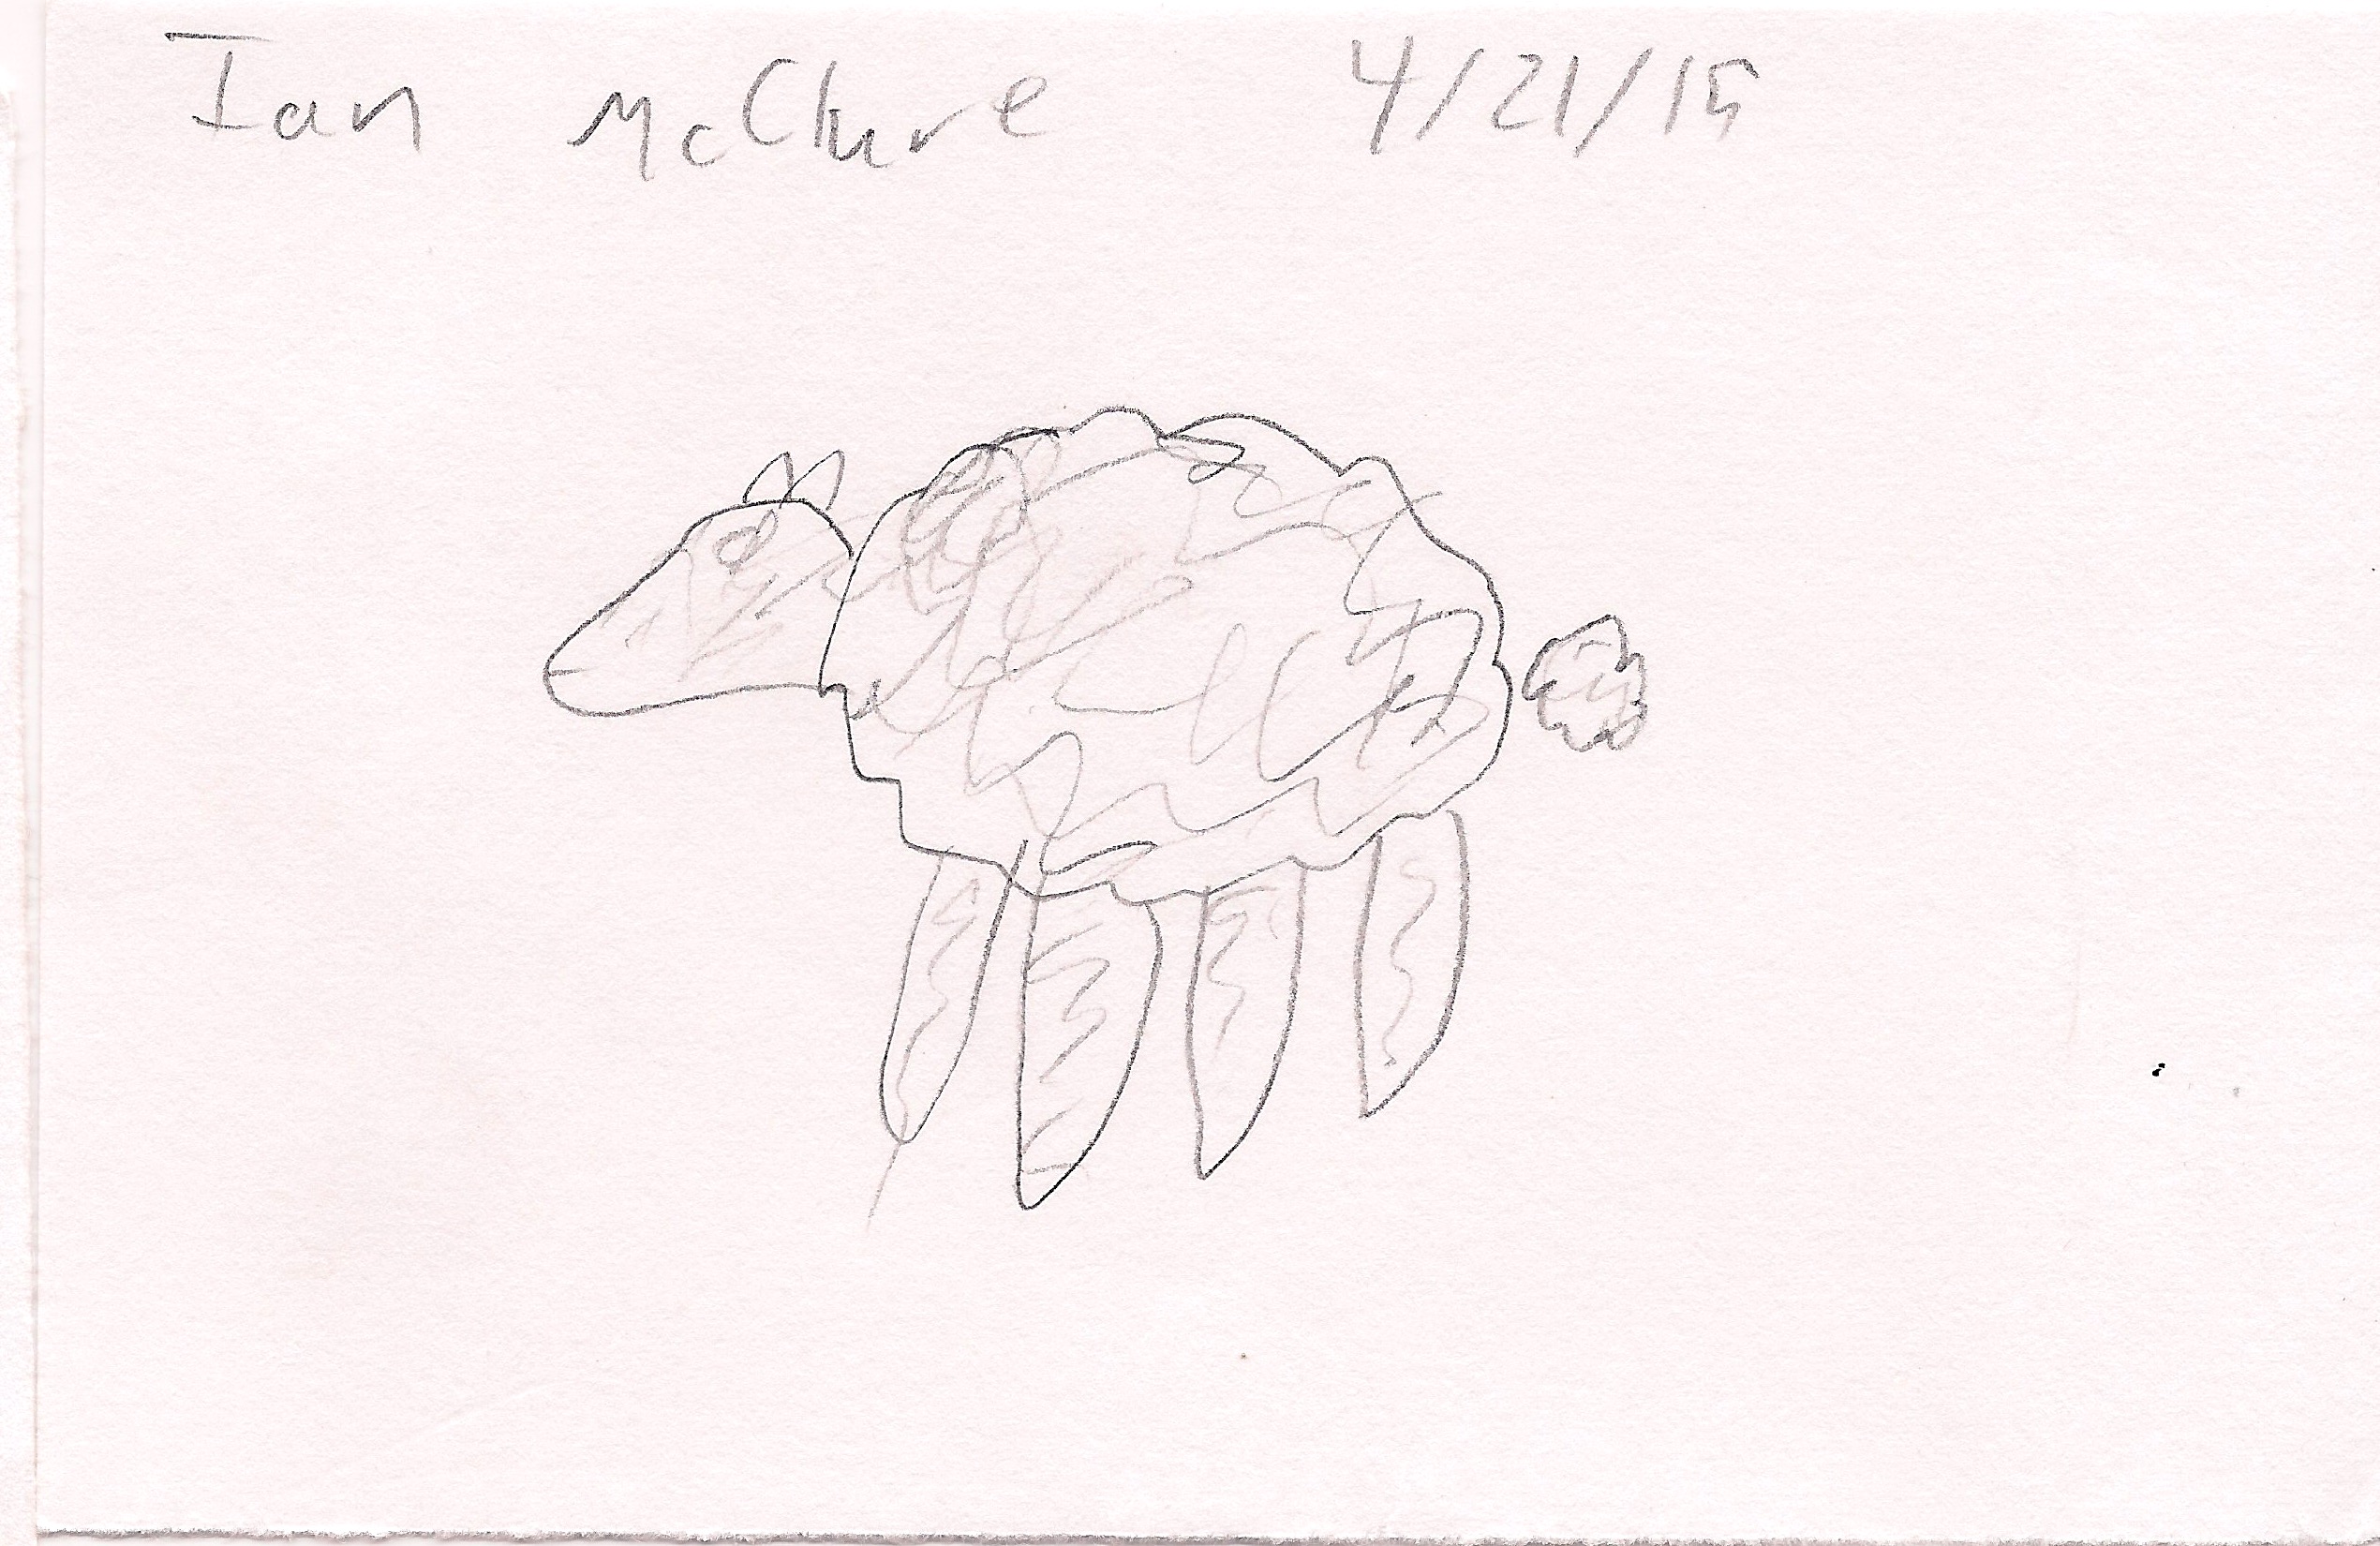 Ian McClure 4/21/15